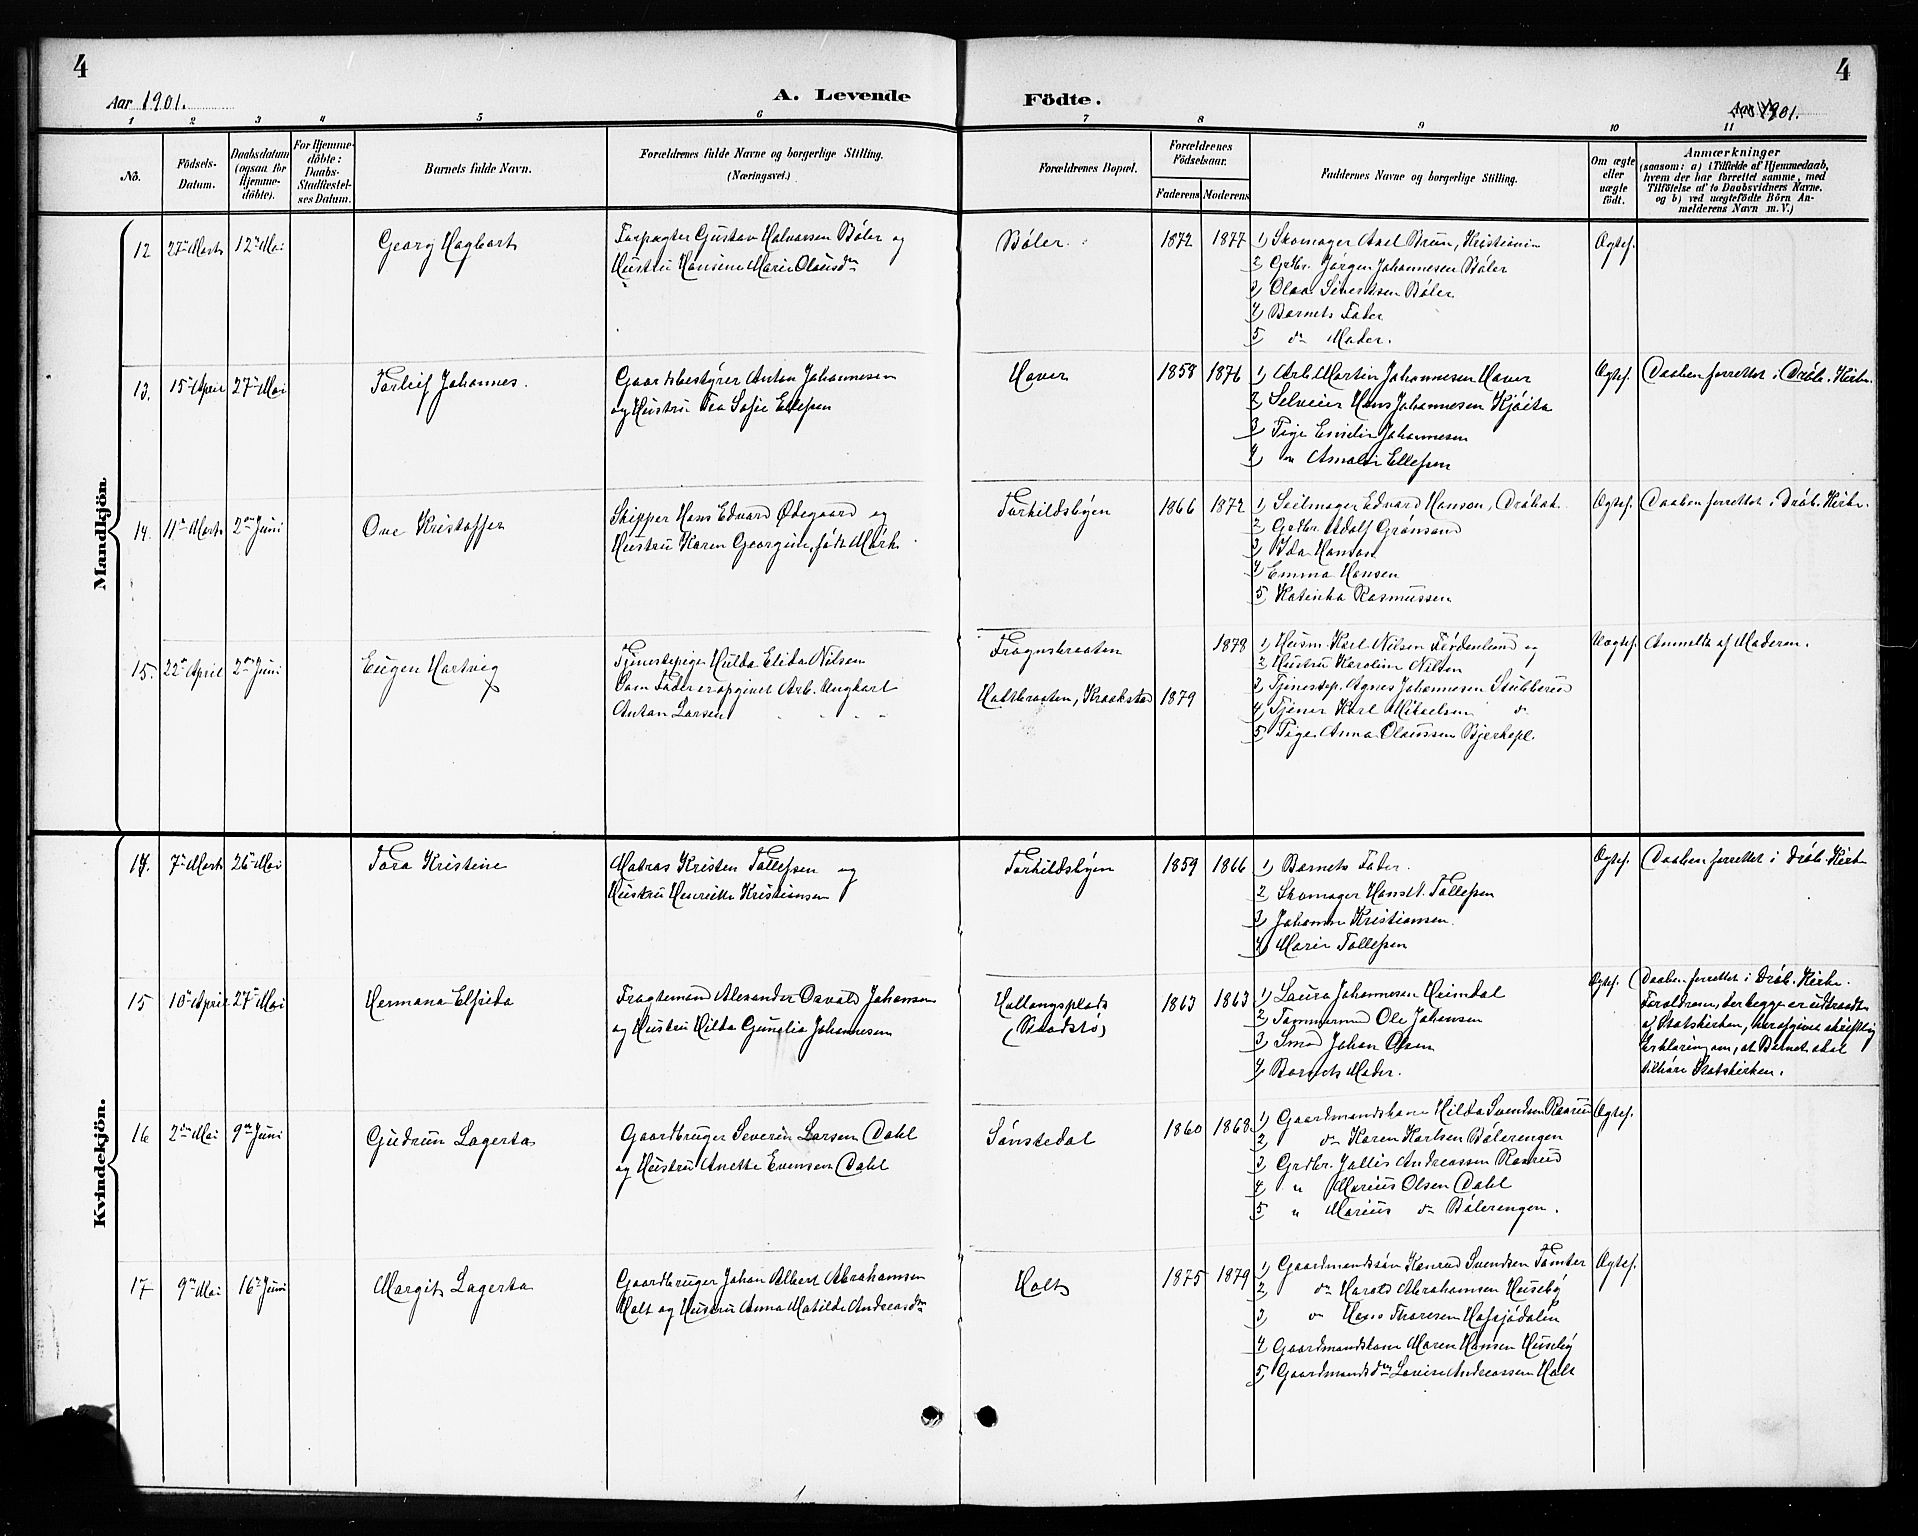 4
4
Aar 1901.
A. Levende
Födte.
Aar 1901.
1 2 3 4 5 6 7 8 9 10 11
No.
Födsels-
Datum.
Daabsdatum
(ogsaa for
Hjemme-
döbte).
For Hjemme-
döbte:
Daabs-
Stadfæstel-
ses Datum.
Barnets fulde Navn.
Forældrenes fulde Navne og borgerlige Stilling.
(Næringsvei.)
Forældrenes Bopæl.
Forældrenes
Födselsaar.
Faderens
Moderens
Faddernes Navne og borgerlige Stilling.
Om ægte
eller
uægte
födt.
Anmærkninger
(saasom: a) i Tilfælde af Hjemmedaab,
hvem der har forrettet samme, med
Tilföielse af to Daabsvidners Navne.
og b) ved uægtefödte Börn An-
melderens Navn m. V.)
Mandkjön.
12 27de Marts 12te Mai
Georg Hagbart
Forpagter Gustav Halvorsen Bøler og
Hustru Hansine Marie Olausdn
Bøler
1872 1877
1) Skomager Axel Brun, Kristiania
2 Grdbr. Jørgen Johannesen Bøler
3) Olaa Simensen Bøler
4) Barnets Fader
5 do Moder.
Ægtef.
13. 15de April 27de Mai
Torleif Johannes.
Gaardsbestyrer Anton Johannesen
og Hustru Tea Sofie Ellefsen
Haver
1858 1876
1) Arb. Martin Johannesen Haver
2 Selveier Hans Johannesen Kjøita
3) Pige Emilie Johannesen
4) " Amalie Ellefsen
Ægtef.
Daaben forrettet i Drøb. Kirke.
14. 11te Marts 2den Juni
Ove Kristoffer
Skipper Hans Edvard Ødegaard og
Hustru Karen Georgine, født Mørk.
Torkildsbyen
1866 1872
1) Seilmager Edvard Hanson, Drøbak
2 Grdbr. Adolf Grønsand
3) Ida Hanson
4) Emma Hansen
5 Katinka Rasmussen
Ægtef.
Daaben forrettet i Drøb. Kirke.
15. 22de April 2den Juni
Eugen Hartvig
Tjenestepige Hulda Elida Nilsen
Som Fader er opgivet Arb. Ungkarl
Anton Larsen
Frognsbraaten
Holtbraaten, Kraakstad
1879
1878
1) Husm Karl Nilsen Fjordenlund og
2 Hustru Karoline Nilsen
3) Tjenestep. Agnes Johannesen Stubberud
4) Tjener Karl Mikaelsen do
5) Pige Anna Olaussen Bjerkepl.
Uægtef.
Anmeldt af Moderen.
Kvindekjön.
14. 7de Marts 26de Mai
Tora Kristine
Matros Kristen Tollefsen og
Hustru Henriette Kristiansen
Torkildsbyen
1859 1866
1) Barnets Fader.
2 Skomager Hans M. Tollefsen
3) Johanne Kristiansen
4) Marie Tollefsen
Ægtef.
Daaben forrettet i Drøb. Kirke
15 10de April 27de Mai
Hermana Elfrida
Fragtemand Alexander Osvald Johansen
og Hustru Hilda Gunelia Johannesen
Hallangsplads
(Skiodstø)
1863 1863
1) Laura Johannesen Heimdal
2) Tømmermd Ole Johansen
3) Smed Johan Olsen
4) Barnets Moder.
Ægtef.
Daaben forrettet i Drøb. Kirke.
Forældrene, der begge er udtraadt
af Statskirken, har afgivet skriftlig
Erklæring om, at Barnet skal
tilhøre Statskirken.
16 2den Mai 9de Juni
Gudrun Lagerta
Gaardbruger Severin Larsen Dahl
og Hustru Anette Evensen Dahl
Sønstedal
1860 1868
1) Gaardmandskone Hilda Svendsen Raarud
2) do Karen Karlsen Bølerengen
3 Grdbr. Jallis Andreassen Raarud
4 " Marius Olsen Dahl
5 " Marius do Bølerengen.
Ægtef.
17 9de Mai 16de Juni
Margit Lagerta
Gaardbruger Johan Albert Abrahamsen
Holt og Hustru Anna Matilde Andreasdn
Holt
1875 1879
1) Gaardmandssøn Konrad Svendsen Tomter
2) do Harald Abrahamsen Huseby
3) do Hans Thoresen Hafsjødalen
4 Gaardmandskone Maren Hansen Huseby
5) Gaardmandsdtr Lovise Andreassen Holt
Ægtef.